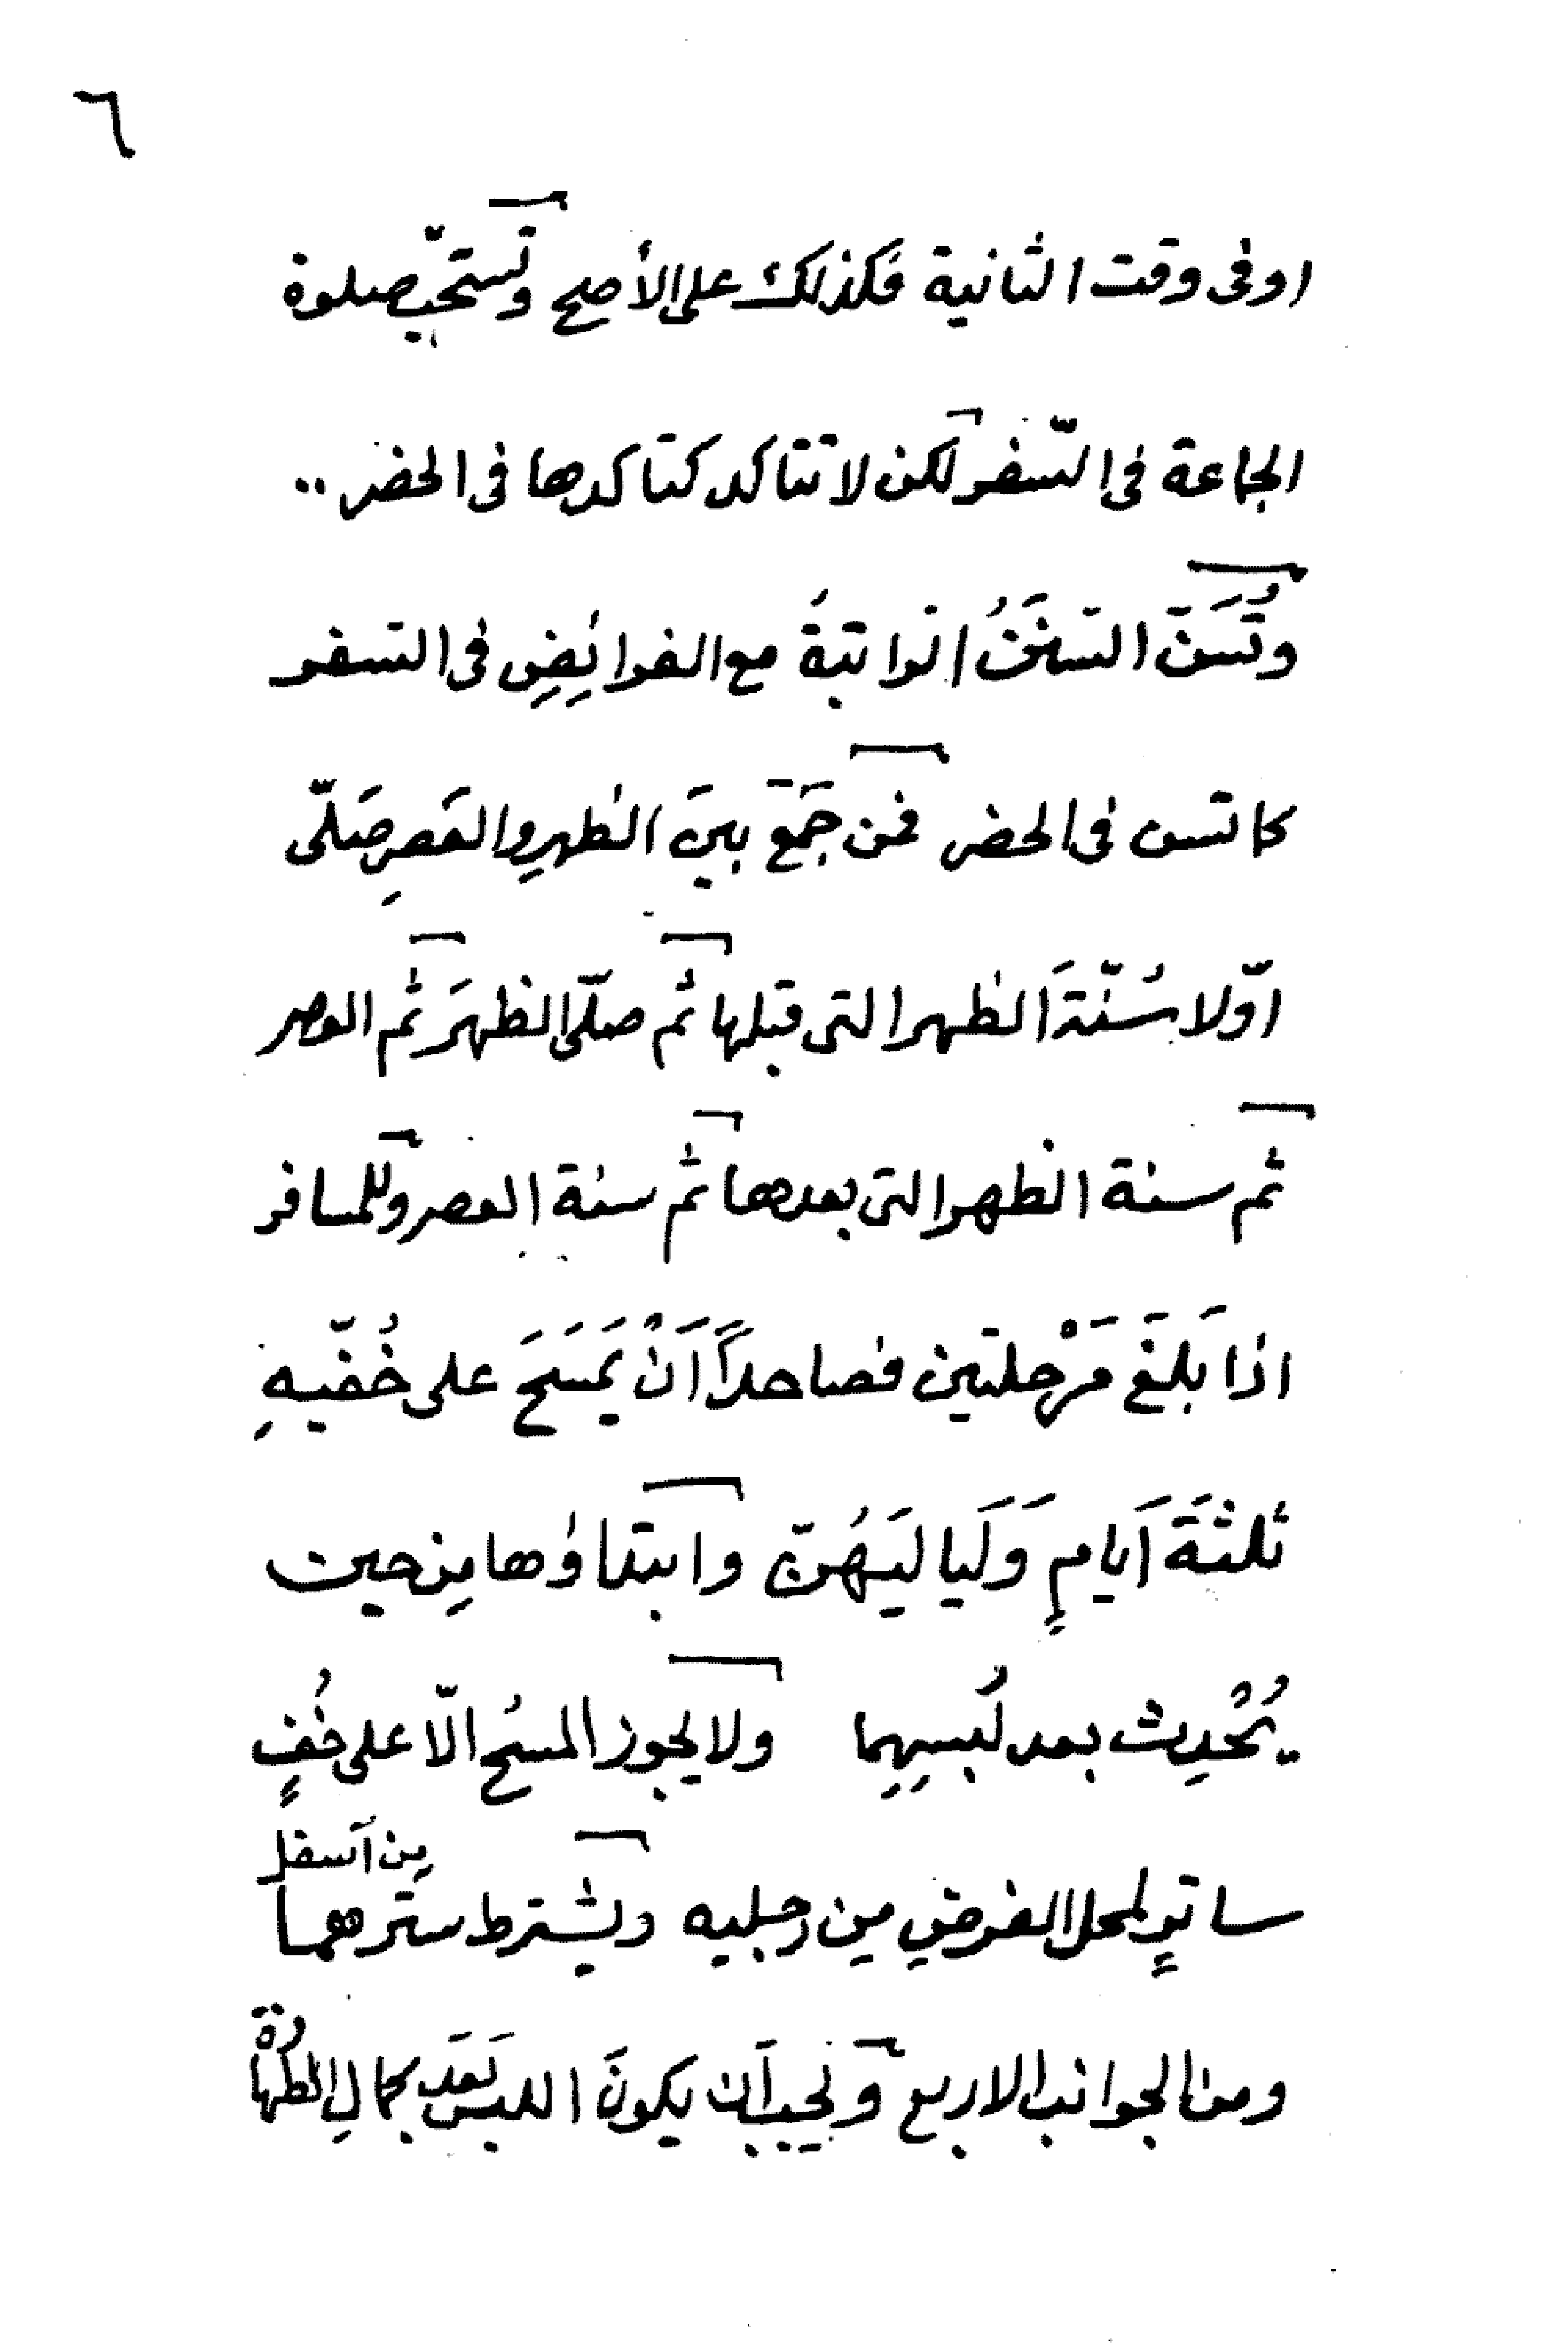 ٦
او فى وقت الثانية فكذلك على الأصح وتستحبّ صلوة
الجماعة فى السّفر لكن لا تتاكد كتاكدها فى الحضر ..
وتُسَنّ السننَُ الراتبةُ مع الفرائِضِ فى السفر
كما تسن فى الحضر فمن جَمَعَ بينَ الظهرِ والعَصرِ صَلّى
اوّلا سُنّةَ الظهر التى قبلها ثم صلّى الظهرَ ثم العصر
ثم سنة الظهر التى بعدها ثم سنة العصر وللمسافر
اذا بَلَغَ مَرْحلتين فصاعداً اَنْ يَمسَحَ على خُفّيهِ
ثلثةَ اَيامٍ وَلَيالِيَهُنّ وابتداؤها مِن حين
يُحْدِث بعد لُبسِهِما ولا يجوز المسحُ الّا على خُفٍ
ساترٍ لمحل الفرضِ مِن رجليه ويشترط سترهما مِن اَسفل
ومن الجوانب الاربع ويجب اَن يكونَ اللبس بَعَد كمالِ الطهارة